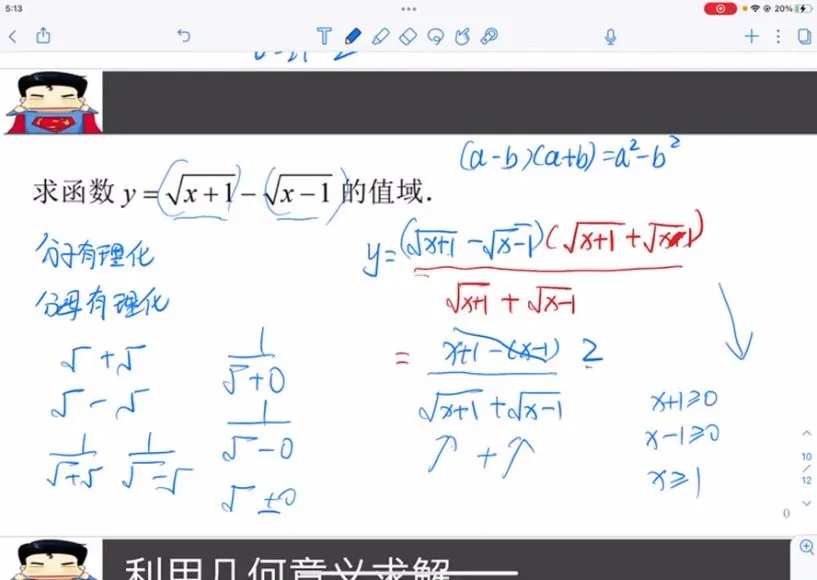 5:13
20%
(a-b)(a+b)=a²-b²
求函数 y=√(x+1)-√(x-1) 的值域.
分子有理化
分母有理化
y=(√(x+1)-√(x-1))(√(x+1)+√(x-1))
√(x+1)+√(x-1)
= x+1-(x-1) 2
√(x+1)+√(x-1)
↗ + ↗
√+√
√-√
1/(√+√) 1/(√-√)
1/(√+0)
1/(√-0)
√±0
x+1≥0
x-1≥0
x≥1
10/12
0
利用几何意义求解